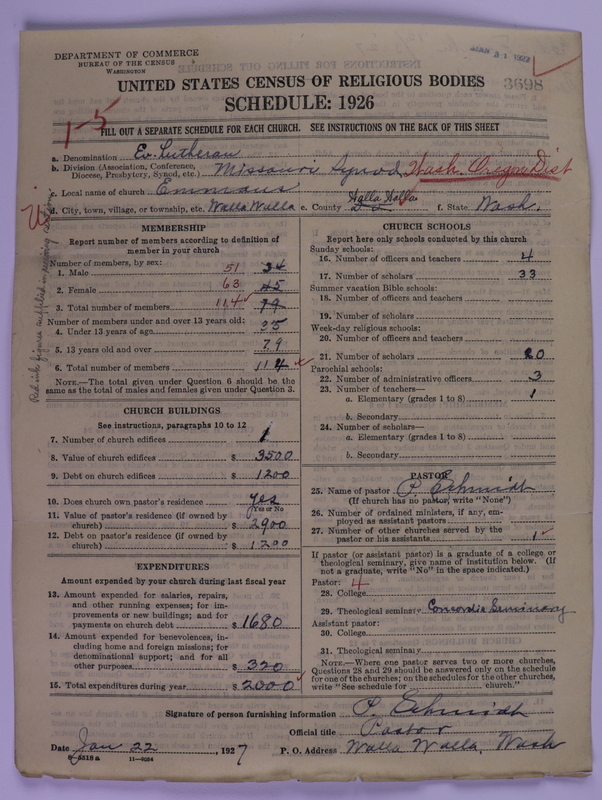 DEPARTMENT OF COMMERCE
BUREAU OF THE CENSUS
WASHINGTON
JAN 31 1927
3698
UNITED STATES CENSUS OF RELIGIOUS BODIES
SCHEDULE: 1926
1-5
FILL OUT A SEPARATE SCHEDULE FOR EACH CHURCH. SEE INSTRUCTIONS ON THE BACK OF THIS SHEET
a. Denomination Ev. Lutheran
b. Division (Association, Conference, Diocese, Presbytery, Synod, etc.) Missouri Synod, Wash. Oregon Dist
c. Local name of church Emmaus
d. City, town, village, or township, etc. Walla Walla e. County Walla Walla f. State Wash.
MEMBERSHIP
Report number of members according to definition of
member in your church
Number of members, by sex:
1. Male 51 34
2. Female 63 45
3. Total number of members 114 79
Number of members under and over 13 years old:
4. Under 13 years of age 35
5. 13 years old and over 79
6. Total number of members 114
NOTE.—The total given under Question 6 should be
same as the total of males and females given under Question 3.
Red ink figures supplied in
CHURCH BUILDINGS
See instructions, paragraphs 10 to 12
7. Number of church edifices 1
8. Value of church edifices $ 3500
9. Debt on church edifices $ 1200
10. Does church own pastor's residence yes
Yes or No
11. Value of pastor's residence (if owned by
church) $ 2900
12. Debt on pastor's residence (if owned by
church) $ 1200
EXPENDITURES
Amount expended by your church during last fiscal year
13. Amount expended for salaries, repairs,
and other running expenses; for im-
provements or new buildings; and for
payments on church debt $ 1680
14. Amount expended for benevolences, in-
cluding home and foreign missions; for
denominational support; and for all
other purposes $ 320
15. Total expenditures during year $ 2000
CHURCH SCHOOLS
Report here only schools conducted by this church
Sunday schools:
16. Number of officers and teachers 4
17. Number of scholars 33
Summer vacation Bible schools:
18. Number of officers and teachers
19. Number of scholars
Week-day religious schools:
20. Number of officers and teachers
21. Number of scholars 20
Parochial schools:
22. Number of administrative officers 3
23. Number of teachers—
a. Elementary (grades 1 to 8) 1
b. Secondary
24. Number of scholars—
a. Elementary (grades 1 to 8)
b. Secondary
PASTOR
25. Name of pastor P. Schmidt
(If church has no pastor, write "None")
26. Number of ordained ministers, if any, em-
ployed as assistant pastors
27. Number of other churches served by the
pastor or his assistants 1
If pastor (or assistant pastor) is a graduate of a college or
theological seminary, give name of institution below. (If
not a graduate, write "No" in the space indicated.)
Pastor: 4
28. College
29. Theological seminary Concordia Seminary
Assistant pastor:
30. College
31. Theological seminary
NOTE.—Where one pastor serves two or more churches,
Questions 28 and 29 should be answered only on the schedule
for one of the churches; on the schedules for the other churches,
write "See schedule for church."
Signature of person furnishing information P. Schmidt
Official title Pastor
Date Jan 22, 1927 P. O. Address Walla Walla, Wash
8-5518a 11-9054